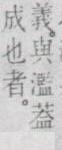 義。與濫葢
成也者。